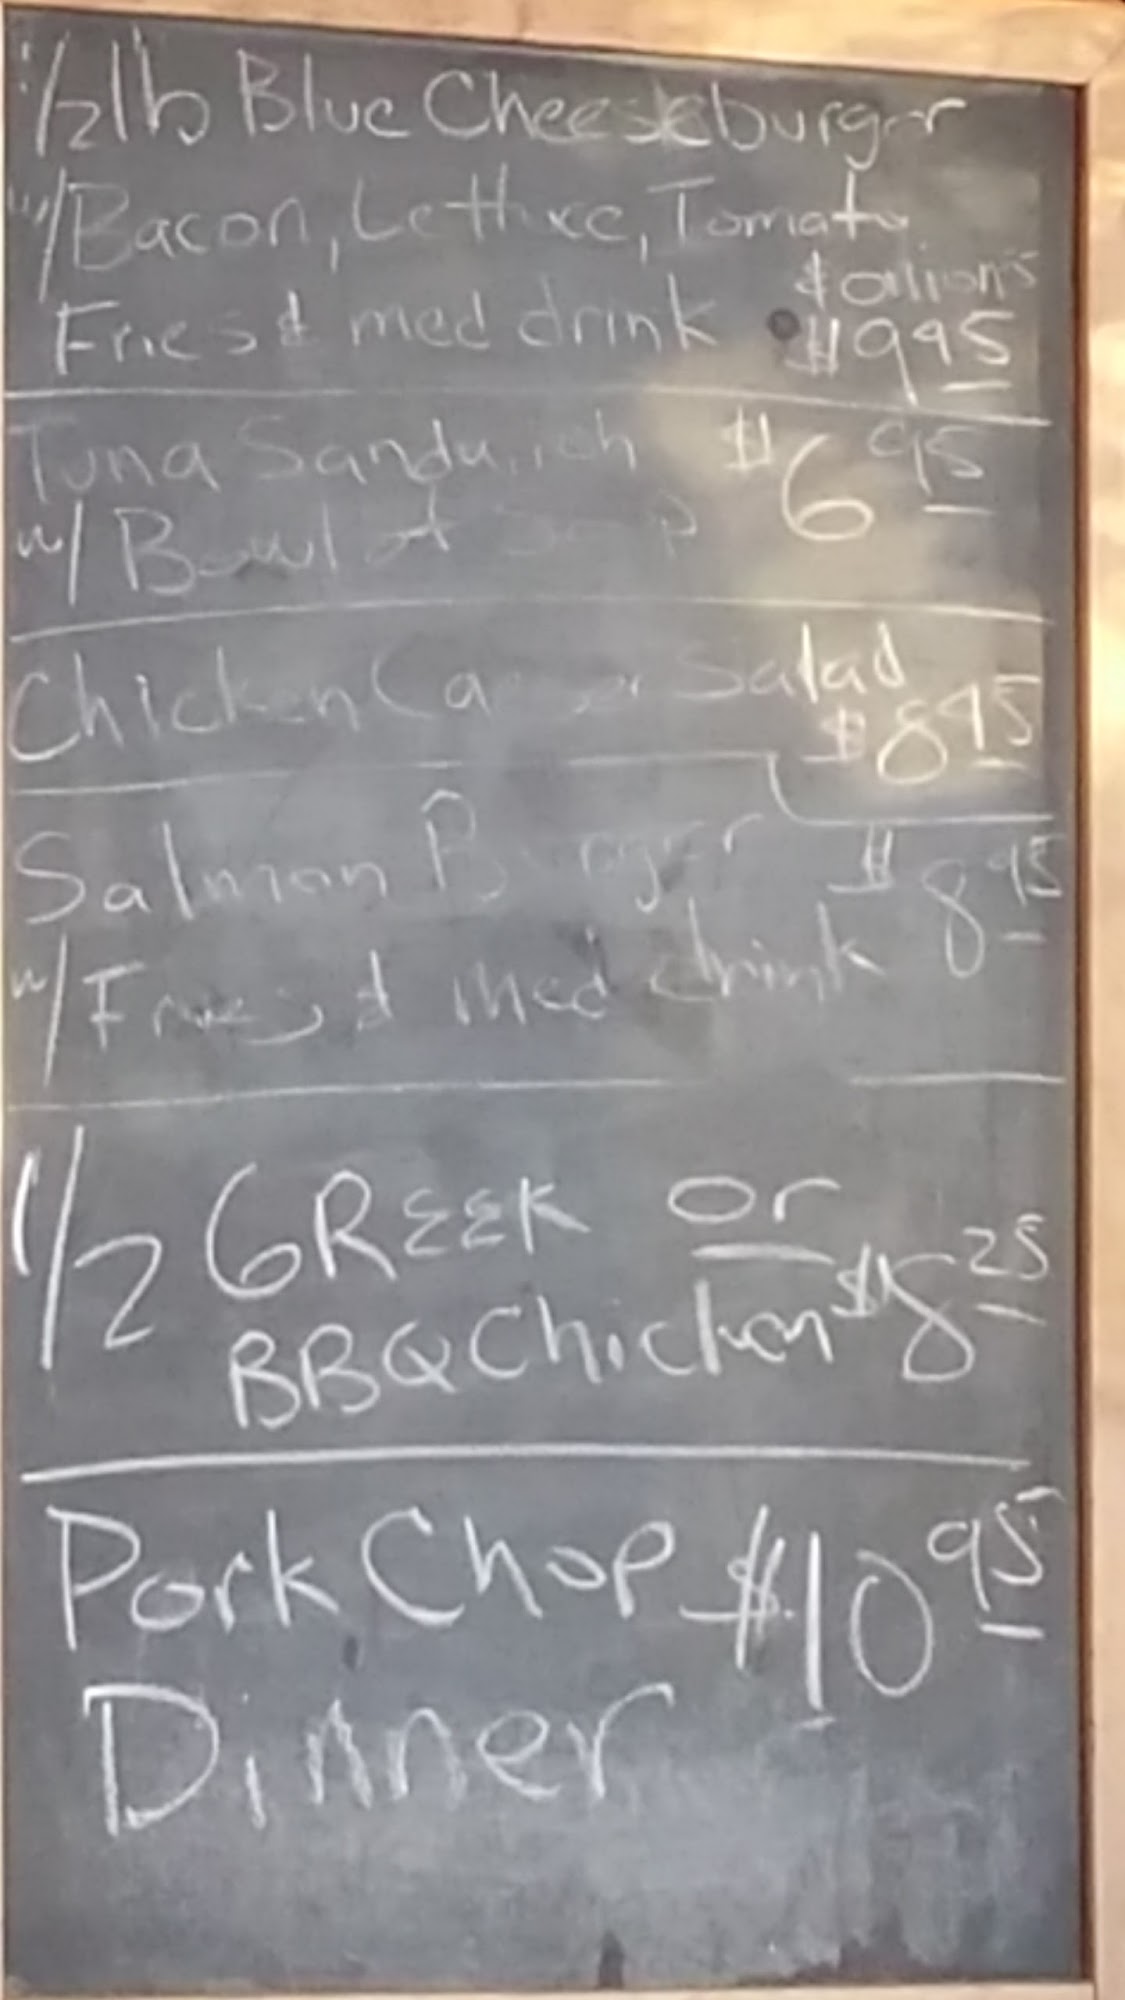 1/2 lb Blue Cheeseburger
w/ Bacon, Lettuce, Tomato
& onions
Fries & med drink $9 95
Tuna Sandwich $6 95
w/ Bowl of Soup
Chicken Caesar Salad
$8 95
Salmon Burger $8 95
w/ Fries & med drink
1/2 GREEK or
BBQ Chicken $8 25
Pork Chop $10 95
Dinner